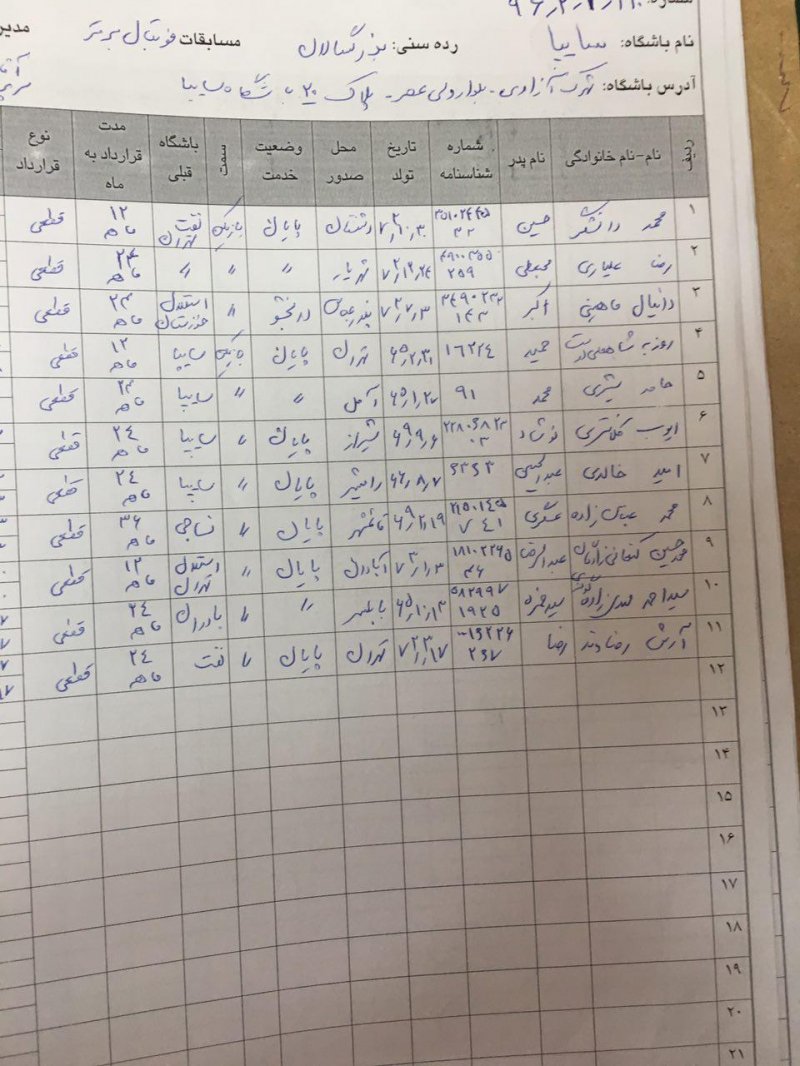 نام باشگاه: سایپا رده سنی: بزرگسالان مسابقات فوتبال برتر
آدرس باشگاه: شهرک آزادی - بلوار ولی عصر - پلاک ۲۰ باشگاه سایپا
ردیف نام-نام خانوادگی نام پدر شماره شناسنامه تاریخ تولد محل صدور وضعیت خدمت سمت باشگاه قبلی مدت قرارداد به ماه نوع قرارداد
۱ محمد دانشگر حسین دشتستان پایان بازیکن نفت تهران ۱۲ ماهه قطعی
۲ رضا علیاری شهریار " " " ۲۴ ماهه قطعی
۳ دانیال ماهینی اکبر ۷۲٫۷٫۳ بندرعباس دانشجو " استقلال خوزستان ۲۳ ماهه قطعی
۴ روزبه شاه علی دوست حمید ۱۶۲۲۴ ۶۵٫۲٫۳۱ تهران پایان بازیکن سایپا ۱۲ ماهه قطعی
۵ حامد شیری محمد ۹۱ ۶۵٫۱٫۲۷ آمل " " سایپا ۲۳ ماهه قطعی
۶ ایوب کلانتری نوشاد ۶۹٫۹٫۶ شیراز پایان " سایپا ۲۴ ماهه قطعی
۷ امید خالدی ۶۶٫۸٫۷ رامشیر پایان " سایپا ۲۴ ماهه قطعی
۸ محمد عباس زاده عسگری ۶۹٫۲٫۱۹ قائمشهر پایان " نساجی ۳۶ ماهه قطعی
۹ محمدحسین کنعانی زادگان عبدالرضا ۷۳٫۱٫۳ آبادان پایان " استقلال تهران ۱۲ ماهه قطعی
۱۰ سیداحمد مهدی زاده سیدحمزه ۵۸۲۹۹۷ ۱۹۲۵ ۶۵٫۱۰٫۱۳ بابلسر " " بادران ۲۴ ماهه قطعی
۱۱ آرش رضاوند رضا تهران پایان " نفت ۲۴ ماهه قطعی
۱۲
۱۳
۱۴
۱۵
۱۶
۱۷
۱۸
۱۹
۲۰
۲۱